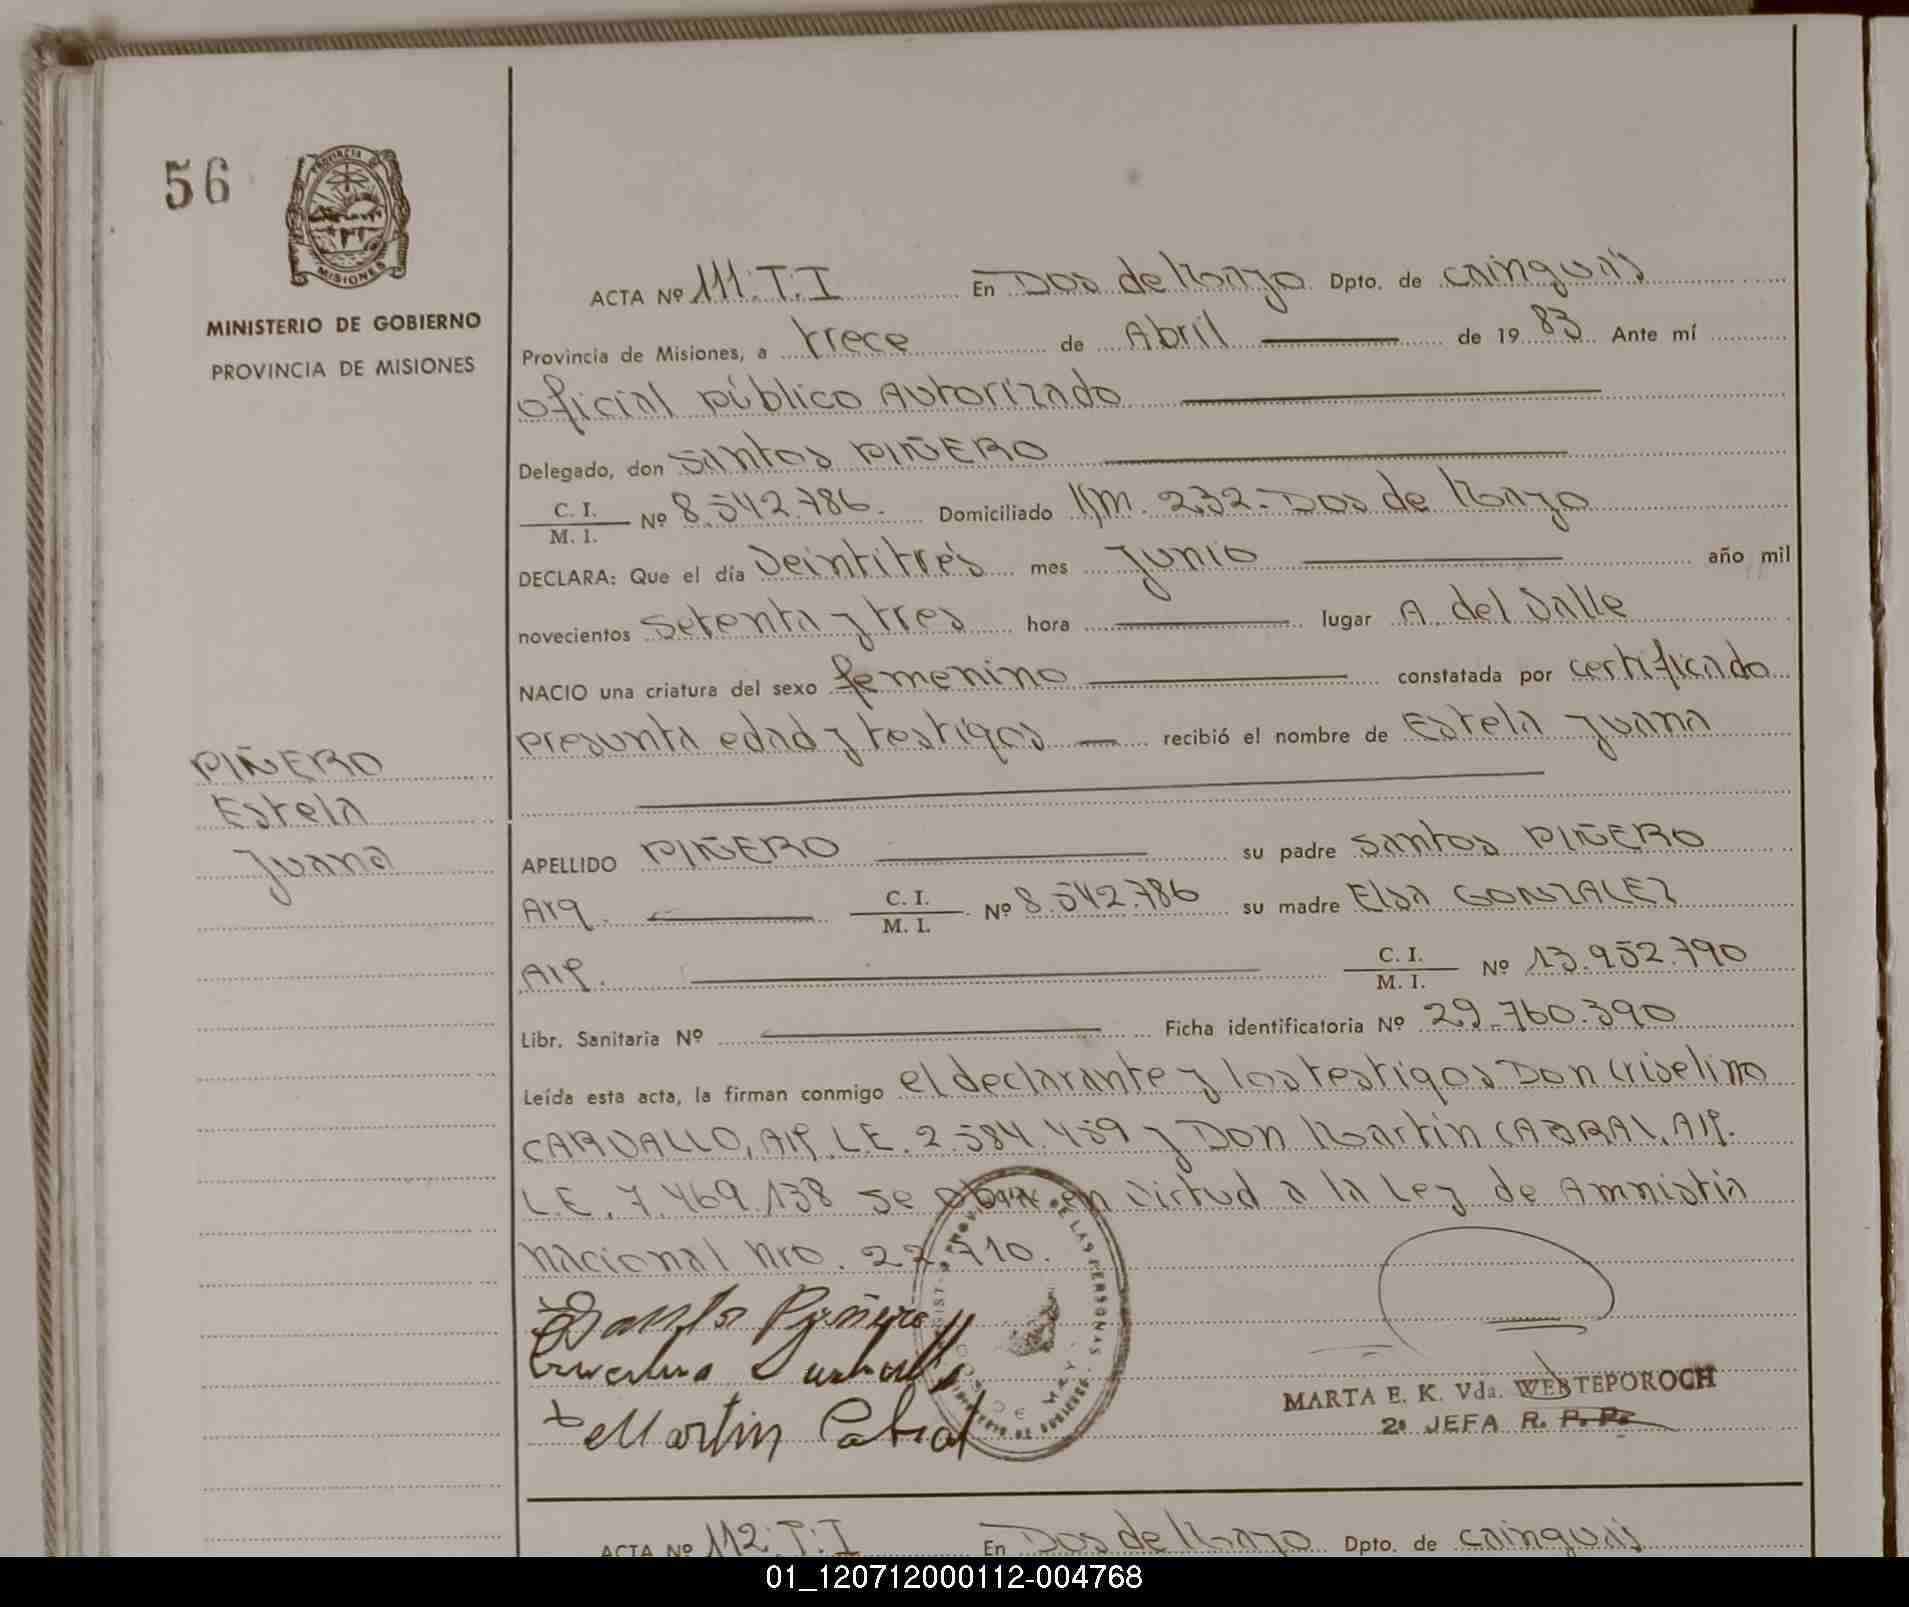 56
PROVINCIA DE
MISIONES
MINISTERIO DE GOBIERNO
PROVINCIA DE MISIONES
PIÑERO
Estela
Juana
ACTA Nº 111.T.I En Dos de Mayo Dpto. de cainguás
Provincia de Misiones, a trece de Abril de 1983 Ante mí
oficial público Autorizado
Delegado, don Santos PIÑERO
C. I. / M. I. Nº 8.542.786. Domiciliado Km. 232-Dos de Mayo
DECLARA: Que el día Veintitrés mes Junio año mil
novecientos setenta y tres hora lugar A. del Valle
NACIO una criatura del sexo femenino constatada por certificado
presunta edad y testigos recibió el nombre de Estela Juana
APELLIDO PIÑERO su padre Santos PIÑERO
Arg. C. I. / M. I. Nº 8.542.786 su madre Elsa GONZALEZ
Arg. C. I. / M. I. Nº 13.952.790
Libr. Sanitaria Nº Ficha identificatoria Nº 29.760.390
Leída esta acta, la firman conmigo el declarante y los testigos Don Criselino
CARVALLO, Arg. L.E. 2.584.459 y Don Martín CABRAL, Arg.
L.E. 7.469.138 se labra en virtud a la Ley de Amnistia
nacional nro. 22.710.
Santos Piñero
Martin Cabral
DE LAS PERSONAS
MARTA E. K. Vda. WEBTEPOROCH
2ª JEFA R. P. P.
ACTA Nº 112.T.I En Dos de Mayo Dpto. de cainguás
01_120712000112-004768